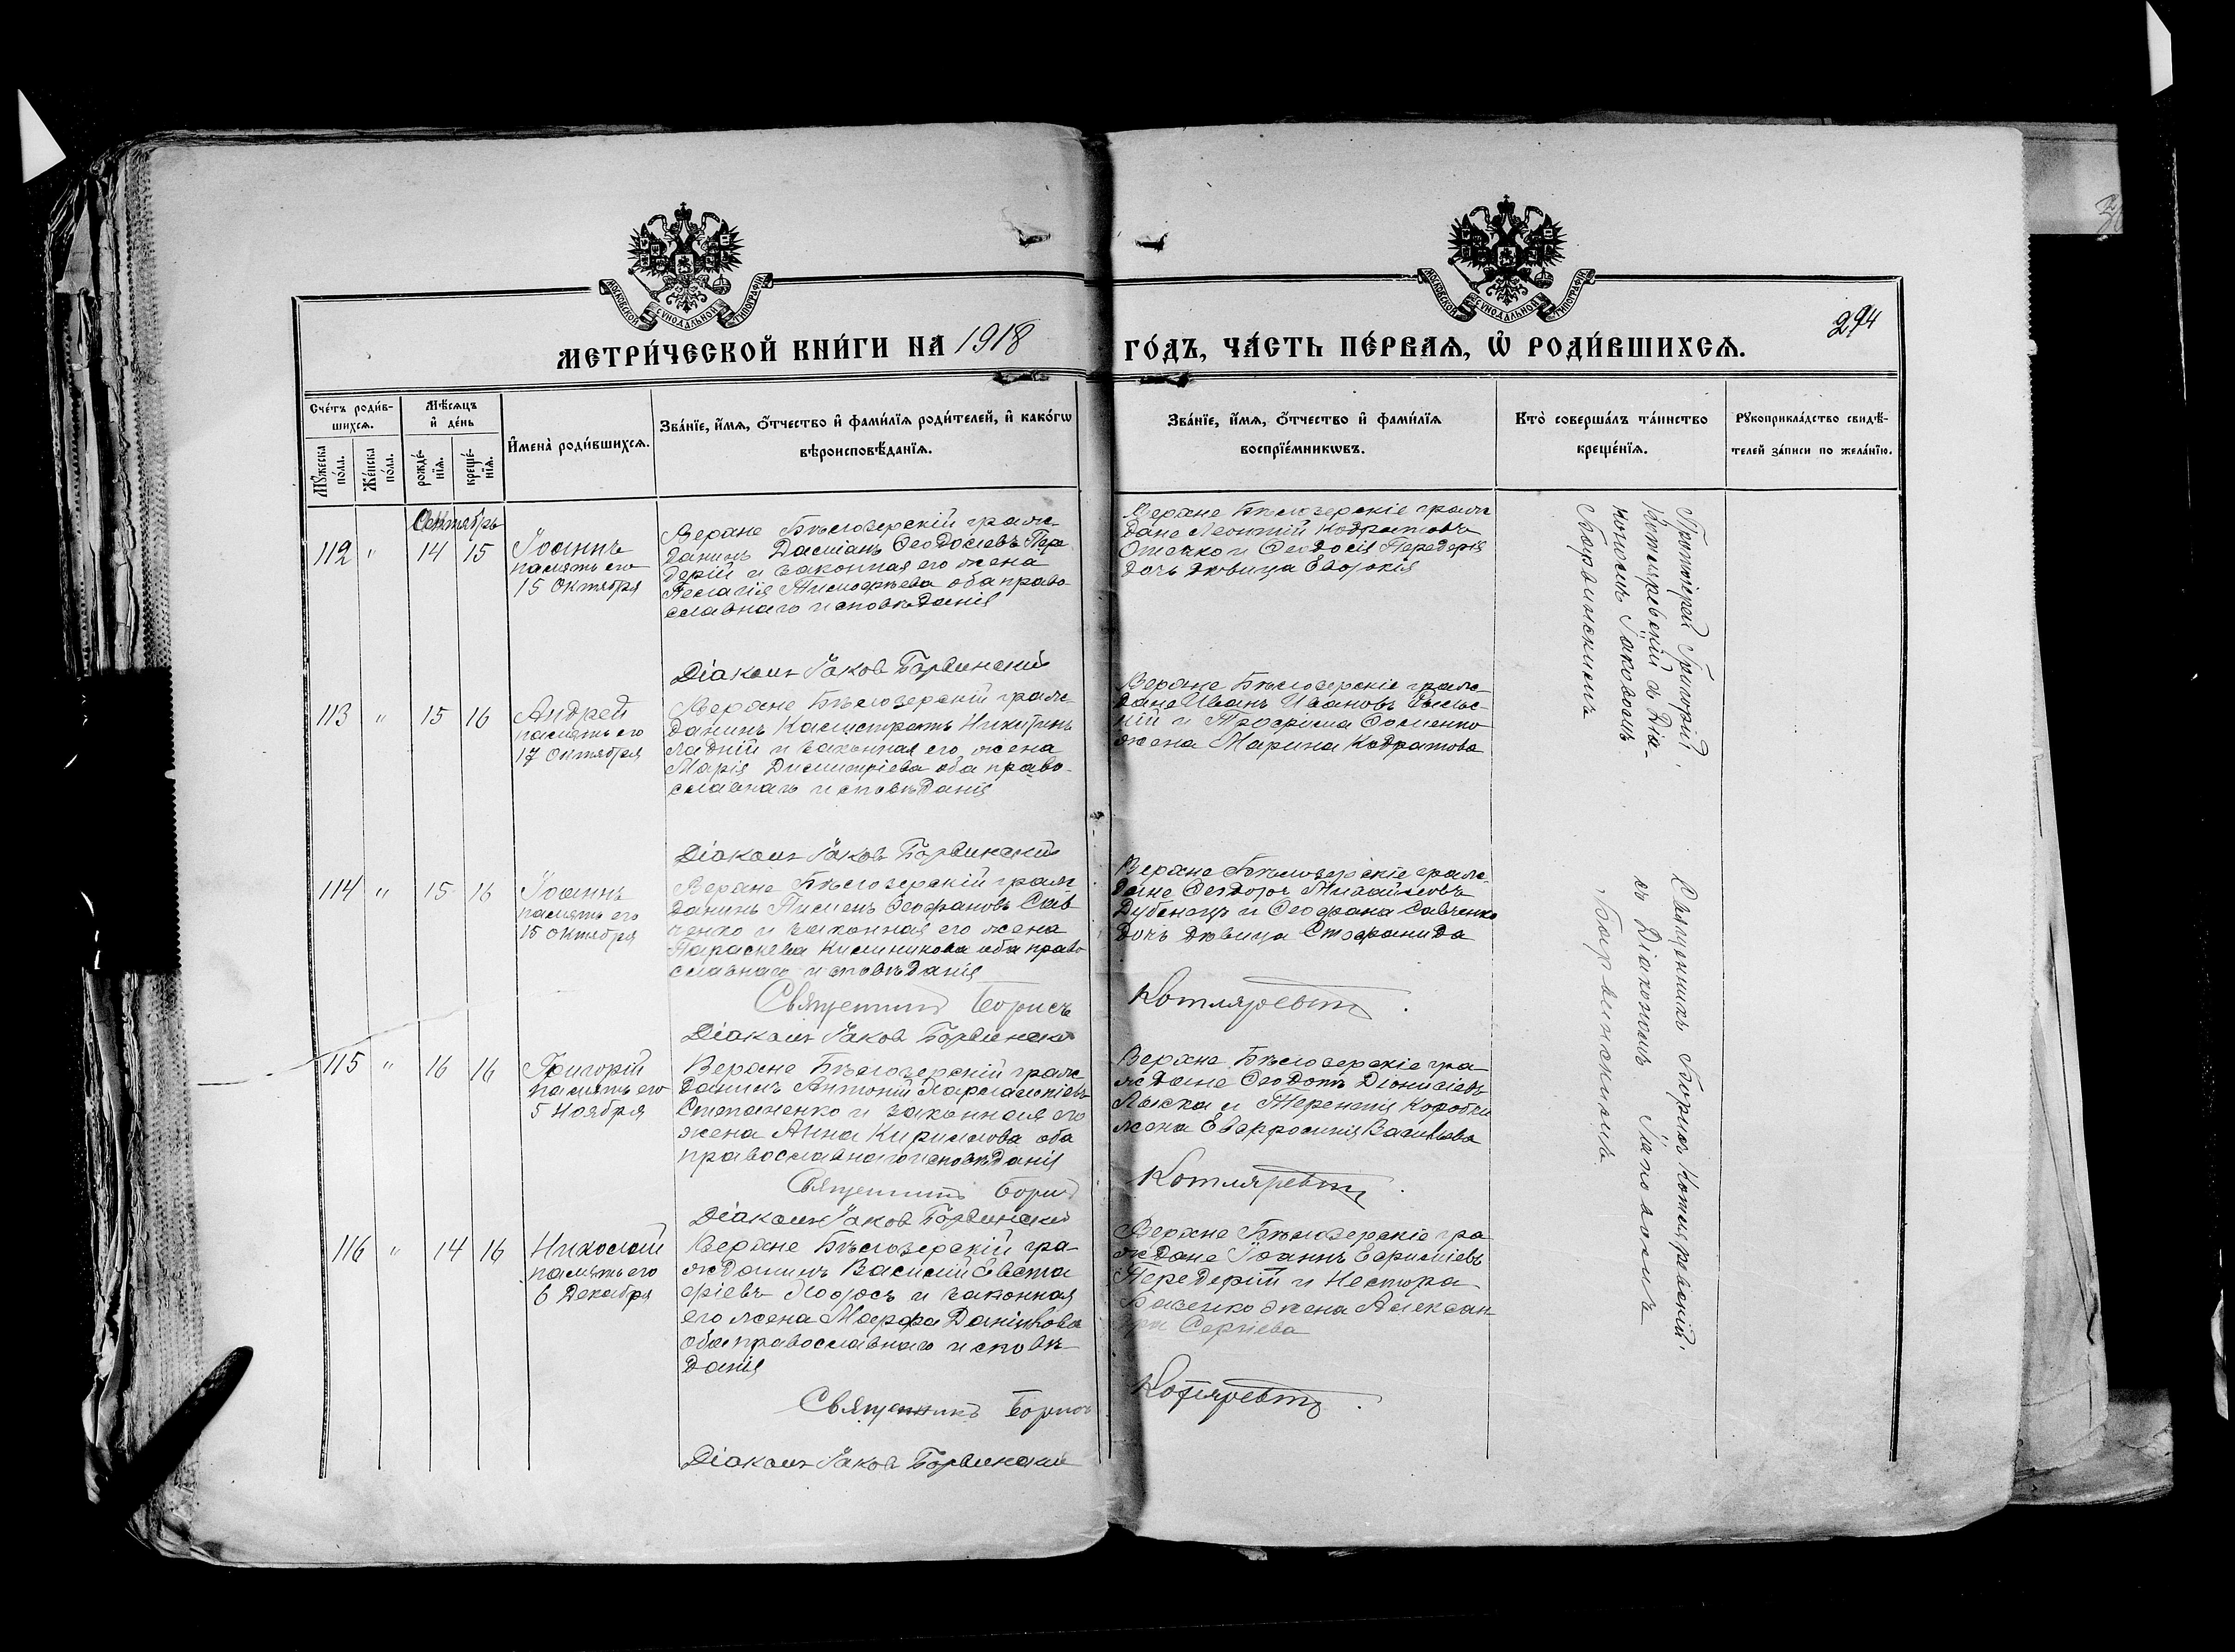 МОСКОВСКОЙ СУНОДАЛЬНОЙ ТИПОГРАФІИ
МОСКОВСКОЙ СУНОДАЛЬНОЙ ТИПОГРАФІИ
МЕТРИ́ЧЕСКОЙ КНИ́ГИ НА 1918
ГО́ДЪ, ЧА́СТЬ ПЕ́РВАѦ, Ѡ҆ РОДИ́ВШИХСѦ.
294
Сче́тъ роди́в-
шихсѧ.
Мꙋ́жеска
по́ла.
Же́нска
по́ла.
Мѣ́сѧцъ
и҆ де́нь
рожде́-
нїѧ.
креще́-
нїѧ.
И҆мена̀ роди́вшихсѧ.
Зва́нїе, и҆́мѧ, ѻ҆́тчество и҆ фами́лїѧ роди́телей, и҆ како́гѡ
вѣроисповѣ́данїѧ.
Зва́нїе, и҆́мѧ, ѻ҆́тчество и҆ фами́лїѧ
воспрїе́мникѡвъ.
Кто̀ соверша́лъ та́инство
креще́нїѧ.
Рꙋкоприкла́дство свидѣ́-
телей за́писи по жела́нїю.
Сентябрь
112 " 14 15
Іоаннъ
память его
15 Октября
Верхне Бѣлозерскій граж-
данинъ Даміанъ Ѳеодосіевъ Пере
дерій и законная его жена
Пелагія Тимоѳѣева оба право
славнаго исповѣданія
Діаконъ Іаковъ Борвинскій
Верхне Бѣлозерскіе граж
дане Леонтій Кодратовъ
и Ѳеодосія Передерія
дочь дѣвица Евдокія
Протоіерей Григорій
Котляревскій съ Діа-
кономъ Іаковомъ
Борвинскимъ
113 " 15 16
Андрей
память его
17 Октября
Верхне Бѣлозерскій граж-
данинъ Калистратъ Никитинъ
Ладній и законная его жена
Марія Димитріева оба право-
славнаго исповѣданія
Діаконъ Іаковъ Борвинскій
Верхне Бѣлозерскіе граж-
дане Иванъ Ивановъ
и Трофима Ѳоменко
жена Марина Кодратова
114 " 15 16
Іоаннъ
память его
15 Октября
Верхне Бѣлозерскій граж
данинъ Пименъ Ѳеофановъ Сав
ченко и законная его жена
Параскева оба право
славнаго исповѣданія
Священникъ Борисъ
Діаконъ Іаковъ Борвинскій
Верхне Бѣлозерскіе граж-
дане Ѳеодоръ Михайловъ
Дубенецъ и Ѳеофана Савченко
дочь дѣвица Стефанида
Котляревскій
Священникъ Борисъ Котляревскій
съ Діакономъ Іаковомъ
Борвинскимъ
115 " 16 16
Григорій
память его
5 Ноября
Верхне Бѣлозерскій граж
данинъ Антоній Харлампіевъ
Степаненко и законная его
жена Анна Кириллова оба
православнаго исповѣданія
Священникъ Борисъ
Діаконъ Іаковъ Борвинскій
Верхне Бѣлозерскіе гра-
ждане Ѳеодотъ Діонисіевъ
Ляска и Терентія Коробки
жена Евфросинія Васильева
Котляревскій
116 " 14 16
Николай
память его
6 Декабря
Верхне Бѣлозерскій гра-
жданинъ Василій Евста
фіевъ и законная
его жена Марфа Даніилова
оба православнаго исповѣ-
данія
Священникъ Борисъ
Діаконъ Іаковъ Борвинскій
Верхне Бѣлозерскіе гра
ждане Іоаннъ Ефиміевъ
Передерій и Нестора
жена Александ
ра Сергіева
Котляревскій